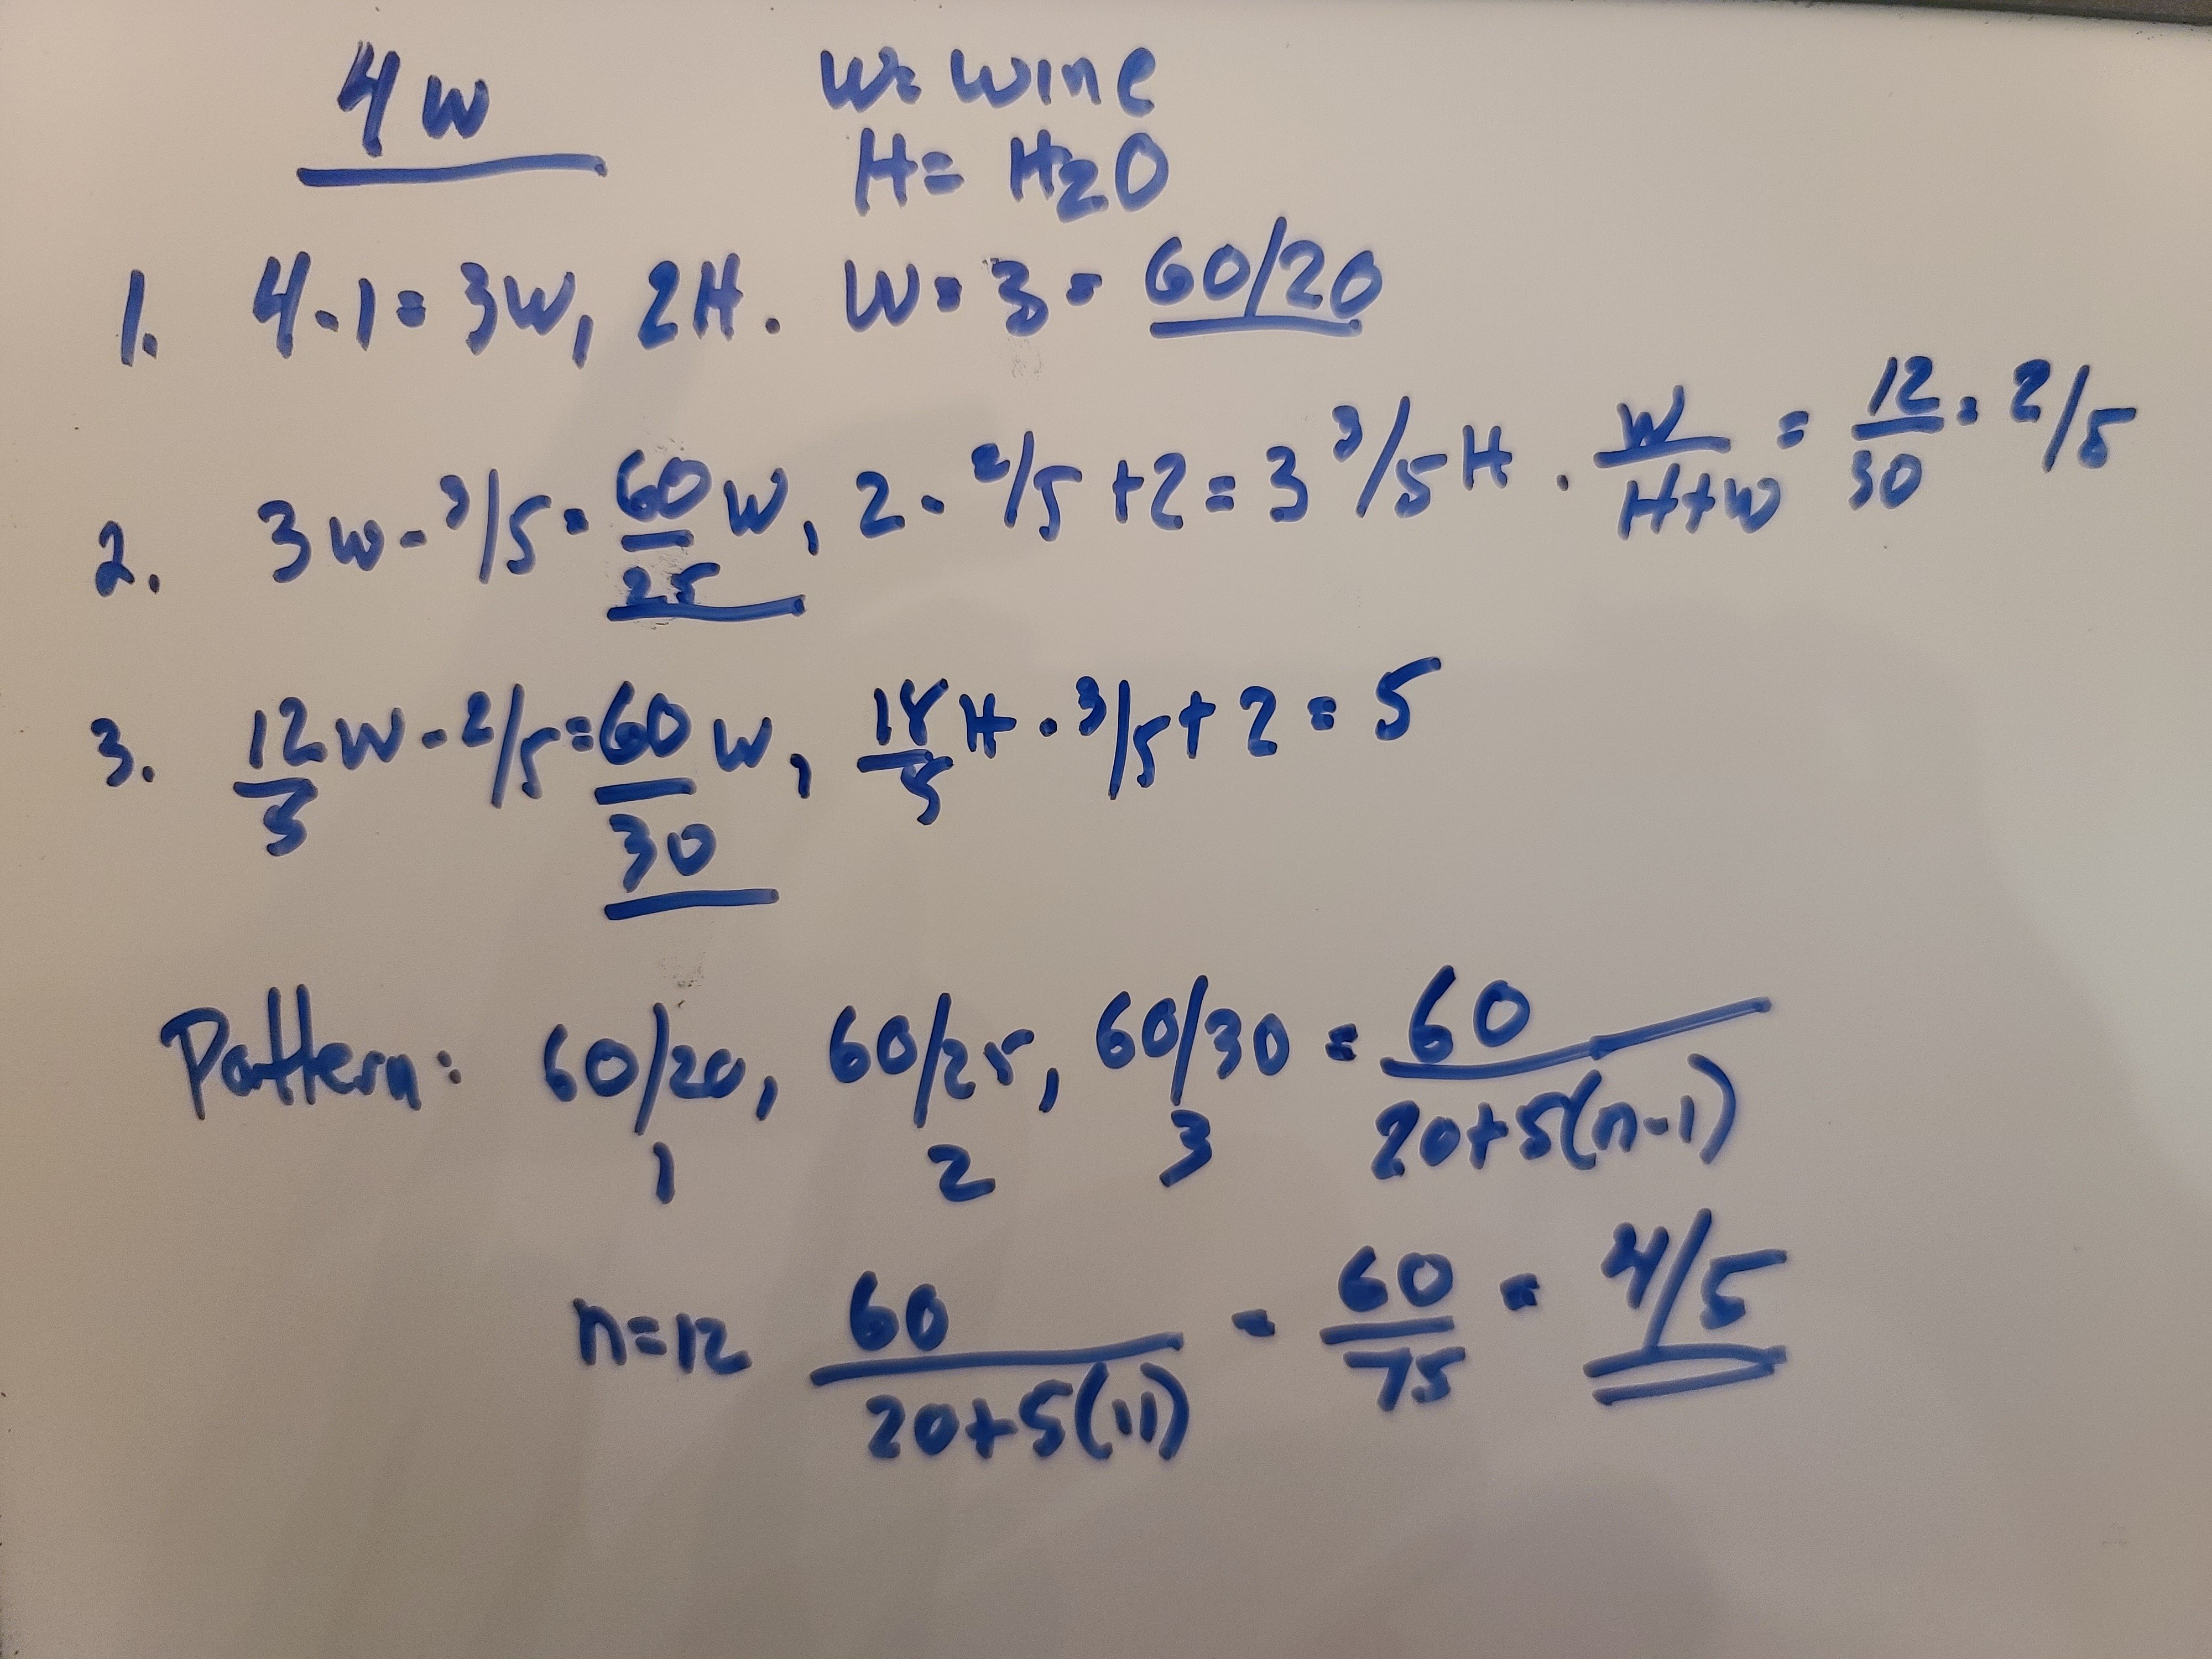 4W
W= Wine
H= H2O
1. 4-1=3W, 2H. W=3= 60/20
2. 3W-3/5=60/25 W, 2-2/5+2=3 3/5 H. W/H+W = 12/30 = 2/5
3. 12/5 W-2/5=60/30 W, 18/5 H-3/5+2=5
Pattern: 60/20, 60/25, 60/30 = 60/20+5(n-1)
1 2 3
n=12 60/20+5(11) = 60/75 = 4/5